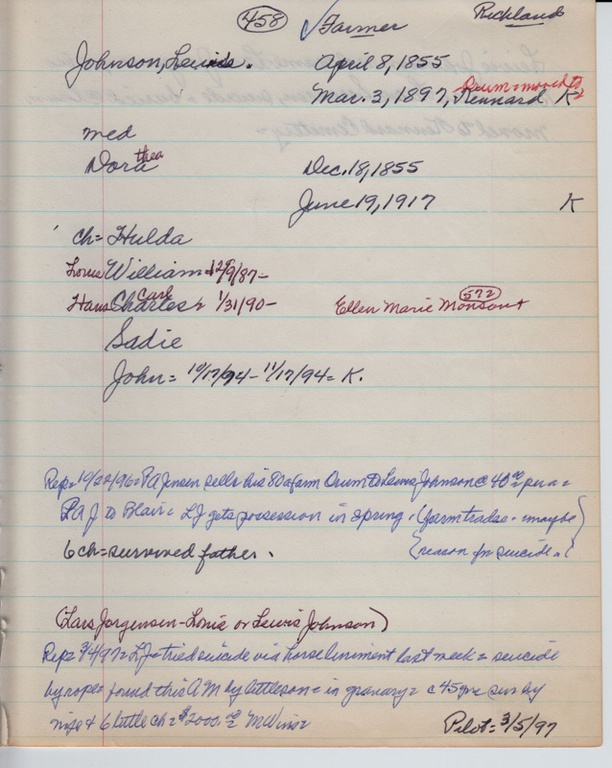 458 ✓ Farmer Richland
Johnson, Lewis. April 8, 1855
Orum = moved to
Mar. 3, 1897, Kennard K
med
Dorathea Dec. 18, 1855
June 19, 1917 K
ch = Hulda
Louie William 12/9/87-
Hans Charles Carl 1/31/90- Ellen Marie Monson+ 572
Sadie
John = 10/17/94 - 11/17/94 = K.
Rep = 10/22/96 = PA Jensen sells his 80a farm Orum to Lewis Johnson @ 40 per a =
PAJ to Blair = LJ gets possession in spring. (farm trades - maybe
6 ch = survived father. reason for suicide.)
(Lars Jorgensen - Louie or Lewis Johnson)
Rep = 3/4/97 = LJ = tried suicide via horse liniment last week = suicide
by rope = found this A.M by little son = in granary = c 45 yrs sur by
wife + 6 little ch = $2000 M Wins
Pilot = 3/5/97